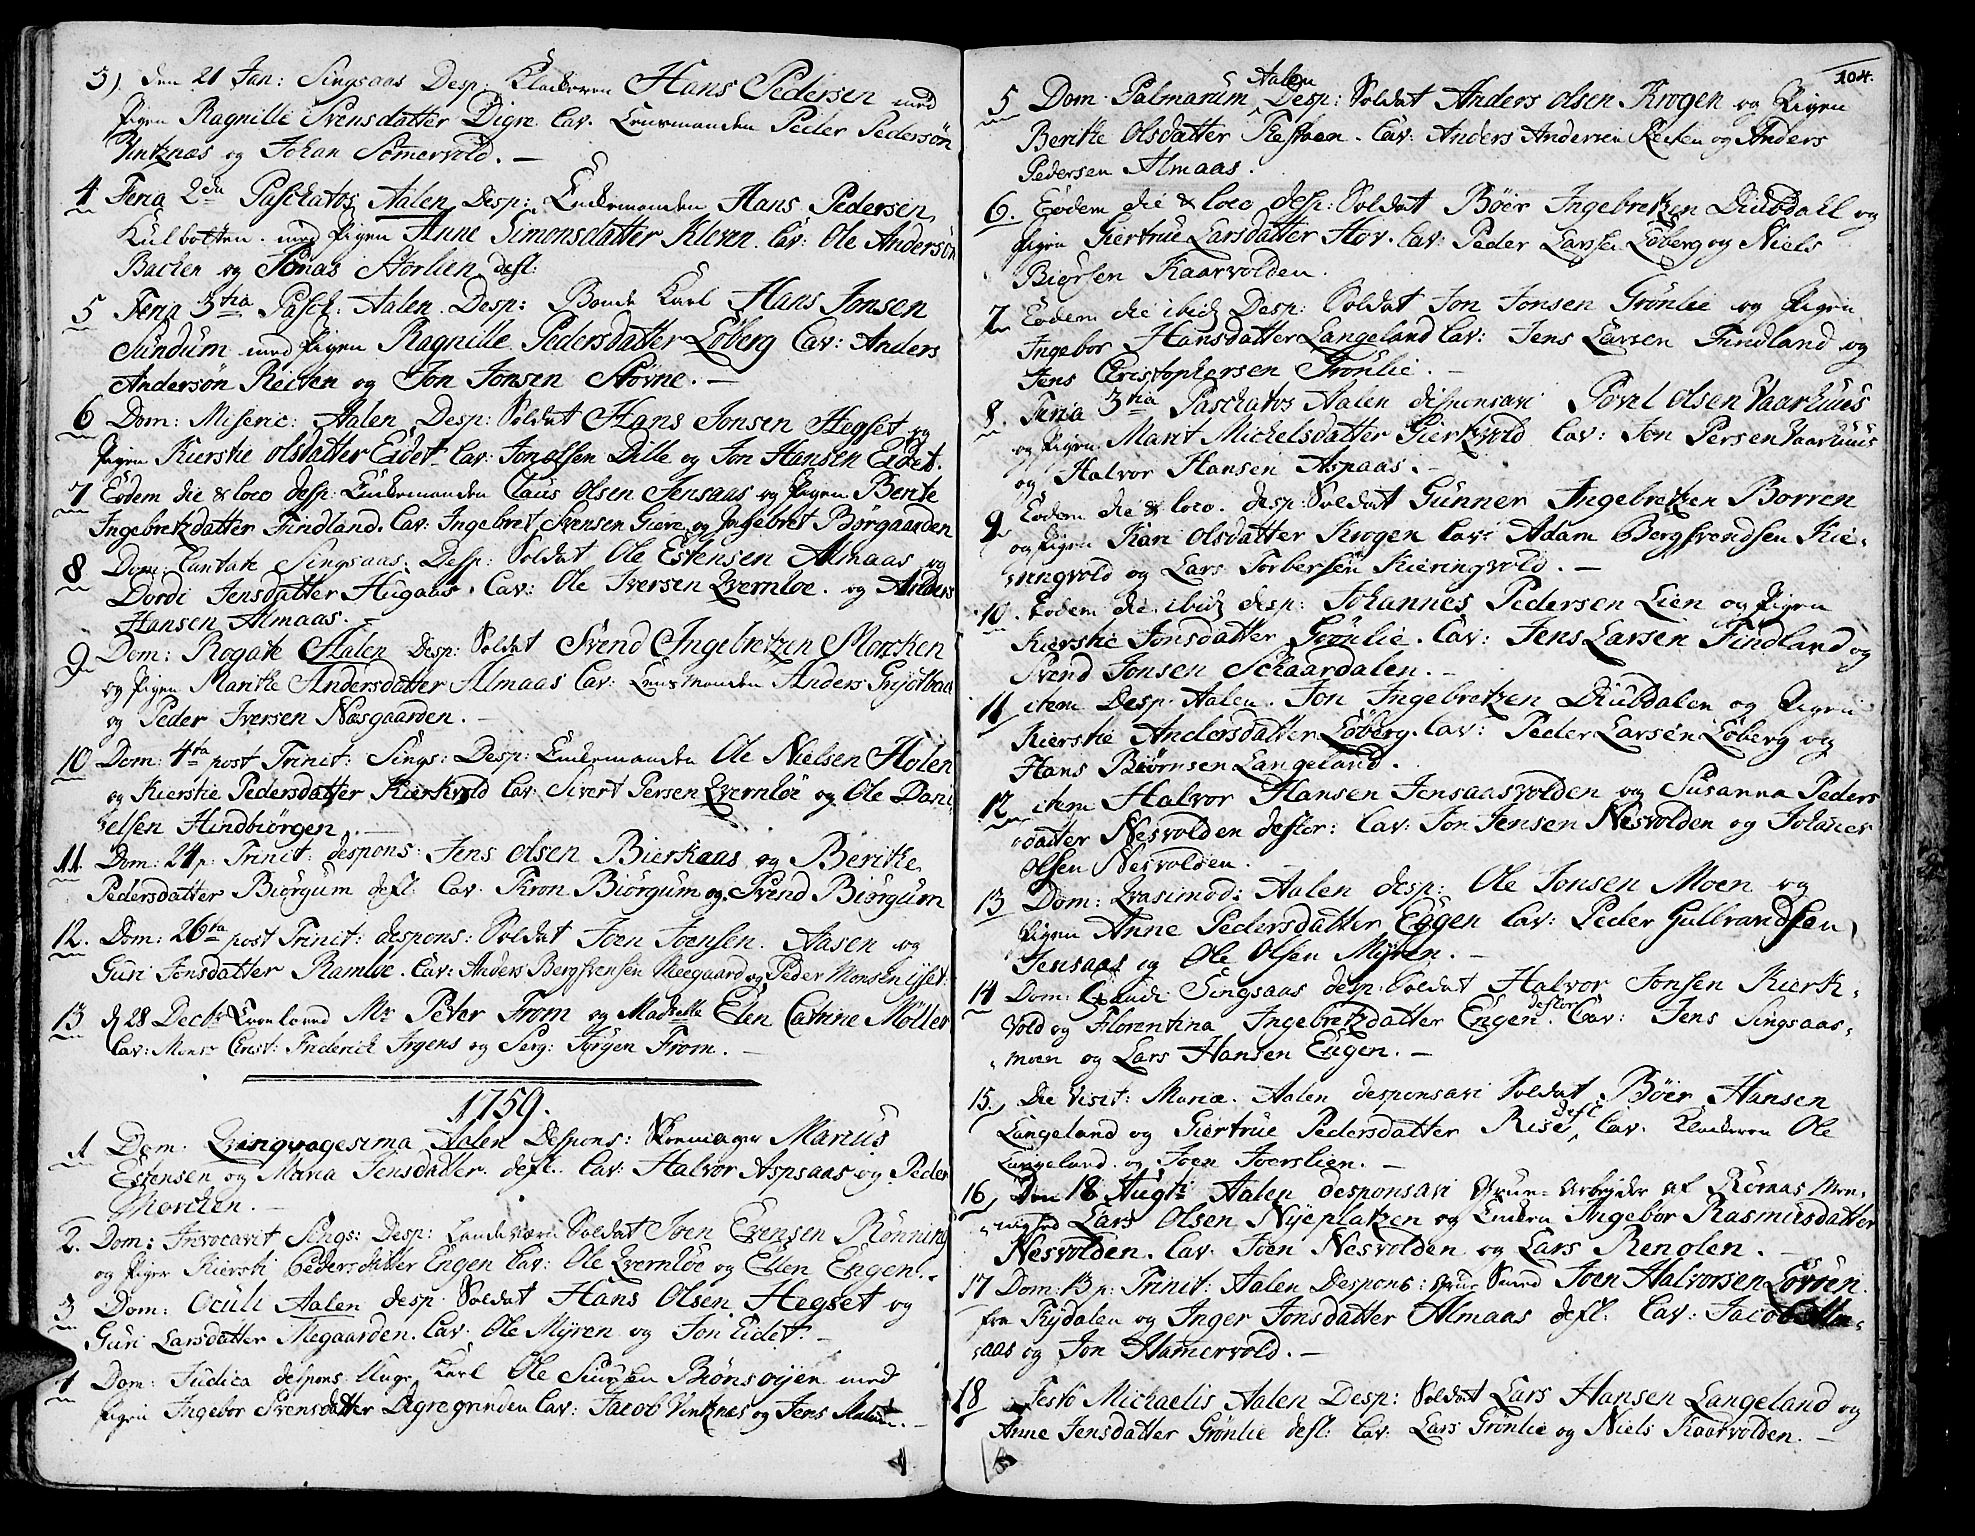 3). den 21 Jan: Singsaas Desp: Klockeren Hans Pedersen med
Pigen Ragnille Svensdatter Digre Cav. Lensmanden Peder Pedersøn
Vintznas og Johan Somervold. –
4 Feria 2da Paschatos Aalen Desp: Enkemanden Hans Pedersen
Kulbotten med Pigen Anne Simonsdatter Kleven. Cav: Ole Andersøn
Backen og Jonas Storlien defl:
5 Feria 3tia Pasch: Aalen Desp: Bonde Karl Hans Jonsen
Sundum med Pigen Ragnille Pedersdatter Løberg Cav: Anders
Andersøn Reiten og Jon Jonsen Støvne. –
6 Dom: Miseric: Aalen Desp: Soldat Hans Jonsen Hegset og
Pigen Kierstie Olsdatter Eidet Cav: Jon Olsen Dille og Jon Hansen Eidet.
7 Eodem die & loco desp: Enkemanden Claus Olsen Jensaas og Pigen Berite
Ingebretzdatter Findland. Cav: Ingebret Svensen Giære og Ingebret Børgaarden
8 Dom: Cantate Singsaas: Desp: Soldat Ole Estensen Almaas og
Dordi Jensdatter Hugaas. Cav: Ole Iversen Qvernløe. og Anders
Hansen Almaas. –
9 Dom: Rogate Aalen Desp: Soldat Svend Ingebretzen Morcken
og Pigen Maritte Andersdatter Almaas Cav: Lensmanden Anders Grøtbac
og Peder Iversen Næsgaarden. –
10 Dom: 4ta post Trinit: Sings: Desp: Enkemanden Ole Nielsen Holen
og Kierstie Pedersdatter Kierkvold Cav: Sivert Persen Qvernløe og Ole Dani
elsen Hindbiørgen. –
11. Dom: 24 p: Trinit: despons: Jens Olsen Bierkaas og Beritke
Pedersdatter Biørgum defl: Cav. Tron Biørgum og Svend Biørgum
12. Dom: 26ta post Trinit: despons: Soldat Joen Joensen Aasen og
Guri Jonsdatter Ramløe. Cav: Anders Bergsvensen Neegaard og Peder Monsen
13 d 28 Decbr Mr Peter From og Madselle Elen Catrine Møller
Cav: Monsr Ernst: Friderich Irgens og Serg: Jørgen From. –
1759.
1 Dom: Qvinqvagesima Aalen Despons: Skomager Marius
Estensen og Maria Jensdatter defl: Cav: Halvor Aspaas og Peder
Morcken. –
2. Dom: Invocavit Sings: Desp: Landeværn Soldat Joen Evensen Rønning
og Pigen Kiersti Pedersdatter Engen Cav: Ole Qvernløe og Ellen Engen. –
3 Dom: Oculi Aalen desp. Soldat Hans Olsen Hegset og
Guri Larsdatter Negaarden. Cav: Ole Myren og Jon Eidet. –
4 Dom: Judica despons: Unge Karl Ole Siursen Bonsøyen med
Pigen Ingebor Svensdatter Digregrinden Cav: Jacob Vintznes og Jens –
104.
5 Dom Palmarum Aalen Desp: Soldat Anders Olsen Krogen og Pigen
Beritke Olsdatter Cav: Anders Andersen Reiten og Anders
Pedersen Almaas.
6. Eodem die & loco desp: Soldat Bøer Ingebretzen Diubdall og
Pigen Giertrue Larsdatter Hov. Cav: Peder Larsen Løberg og Niels
Biørsen Kaarvolden.
7 Eodem die ibid Desp: Soldat Jon Jonsen Grønlie og Pigen
Ingebor Hansdatter Langeland Cav: Jens Larsen Findland og
Jens Christophersen Grønlie. –
8. Feria 3tia Paschatos Aalen desponsari Povel Olsen Vaarhuus
og Pigen Marit Michelsdatter Kierkvold Cav: Jon Persen Vaarhuus
og Halvor Hansen Aspaas. –
9 Eodem die & loco. desp: Soldat Gunner Ingebretzen Borren
og Pigen Kari Olsdatter Krogen Cav: Adam Bergsvendsen Kie-
ringvold og Lars Torbersen Kieringvold. –
10. Eodem die ibid desp: Johannes Pedersen Lien og Pigen
Kierstie Jonsdatter Grønlie. Cav: Jens Larsen Findland og
Svend Jonsen Schaardalen. –
11 item Desp: Aalen. Jon Ingebretzen Diubdalen og Pigen
Kierstie Andersdatter Løberg. Cav: Peder Larsen Løberg og
Hans Biørnsen Langeland.
12 item Halvor Hansen Jensaasvolden og Susanna Peders
datter Nesvolden deflor: Cav: Jon Jensen Nesvolden og Johanes
Olsen Nesvolden.
13 Dom: Qvasimod: Aalen desp: Ole Jonsen Moen og
Pigen Anne Pedersdatter Eggen Cav: Peder Gulbrandsen
Jensaas og Ole Olsen Myren. –
14 Dom: Singsaas desp: Soldat Halvor Jonsen Kierk-
vold og Florentina Ingebretzdatter Engen deflor. Cav: Jens Singsaas-
moen og Lars Hansen Engen. –
15. Die Visit: Mariæ. Aalen desponsari Soldat Bøer Hansen
Langeland og Giertrue Pedersdatter Rise defl Cav: Klockeren Ole
Langeland og Joen Joerslien. –
16 Den 18 Augti Aalen desponsari Grue-Arbejder af Røraas Me-
nighed Lars Olsen Nyeplatzen og Enken Ingebor Rasmusdatter
Nesvolden. Cav: Joen Nesvolden og Lars Renolen. –
17 Dom: 13 p: Trinit: Aalen Despons: Smed Joen Halvorsen Løvøen
fra Tydalen og Inger Jonsdatter Almaas defl: Cav: Jacob Alm-
aas og Jon Hamervold. –
18 Festo Michaelis Aalen Desp: Soldat Lars Hansen Langeland og
Anne Jensdatter Grønlie defl: Cav: Lars Grønlie og Niels Kaarvolden. –